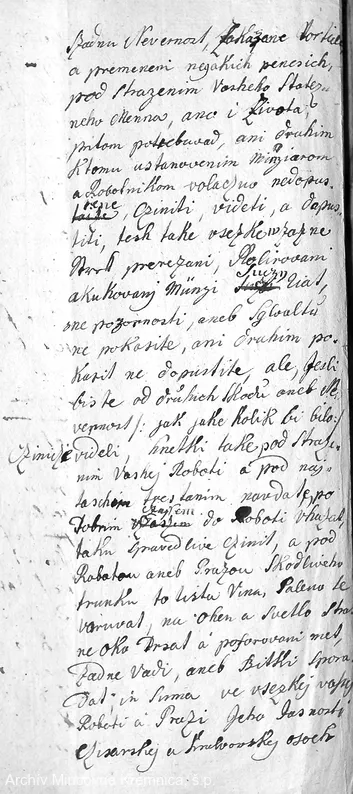 žadnu Nevernost, Zakazane Vorteile
a premeneni negakich penesich,
pod Strazenim Vasheho Statez
neho Menna, ano i Života,
pritom potrebuvad, ani druhim
Ktomu ustanovenim Minziarom
a Robotnikom volaczuo nedopus
tene, Cziniti, videti, a dapus
titi, tesk take vsezke
Sturk prerezani, Regirovani
akukovanj Münzi Ziat,
ne pozornosti, aneb Sgwaltu
ne pokasite, ani druhim po-
kasit ne dopustite, ale, Jesli
biste od druhich Skodu aneb Ne
vernost /: jak jake kolik bi bilo :/
Czinitj videli, hnetki take pod Straze
nim Vashej Roboti a pod naj-
taschem trestanim navdate, po
dobrim czasem do Roboti vkazat,
taku Spravedlive Czinit, a pod
Robotou aneb Prazou Skodliveho
trunku to listu Vina, Paleno te
varuvat, na Ohen a Svetlo Stras
ne Oko Drzat a pozorovani met,
Žadne Vadi, aneb Bitki Spora
Dat in Suma ve vsezkej vasej
Roboti a Prazi Jeho Jasnosti
Czisarskej a Kralovskej osoch
Archiv Mincovne Kremnica, š.p.